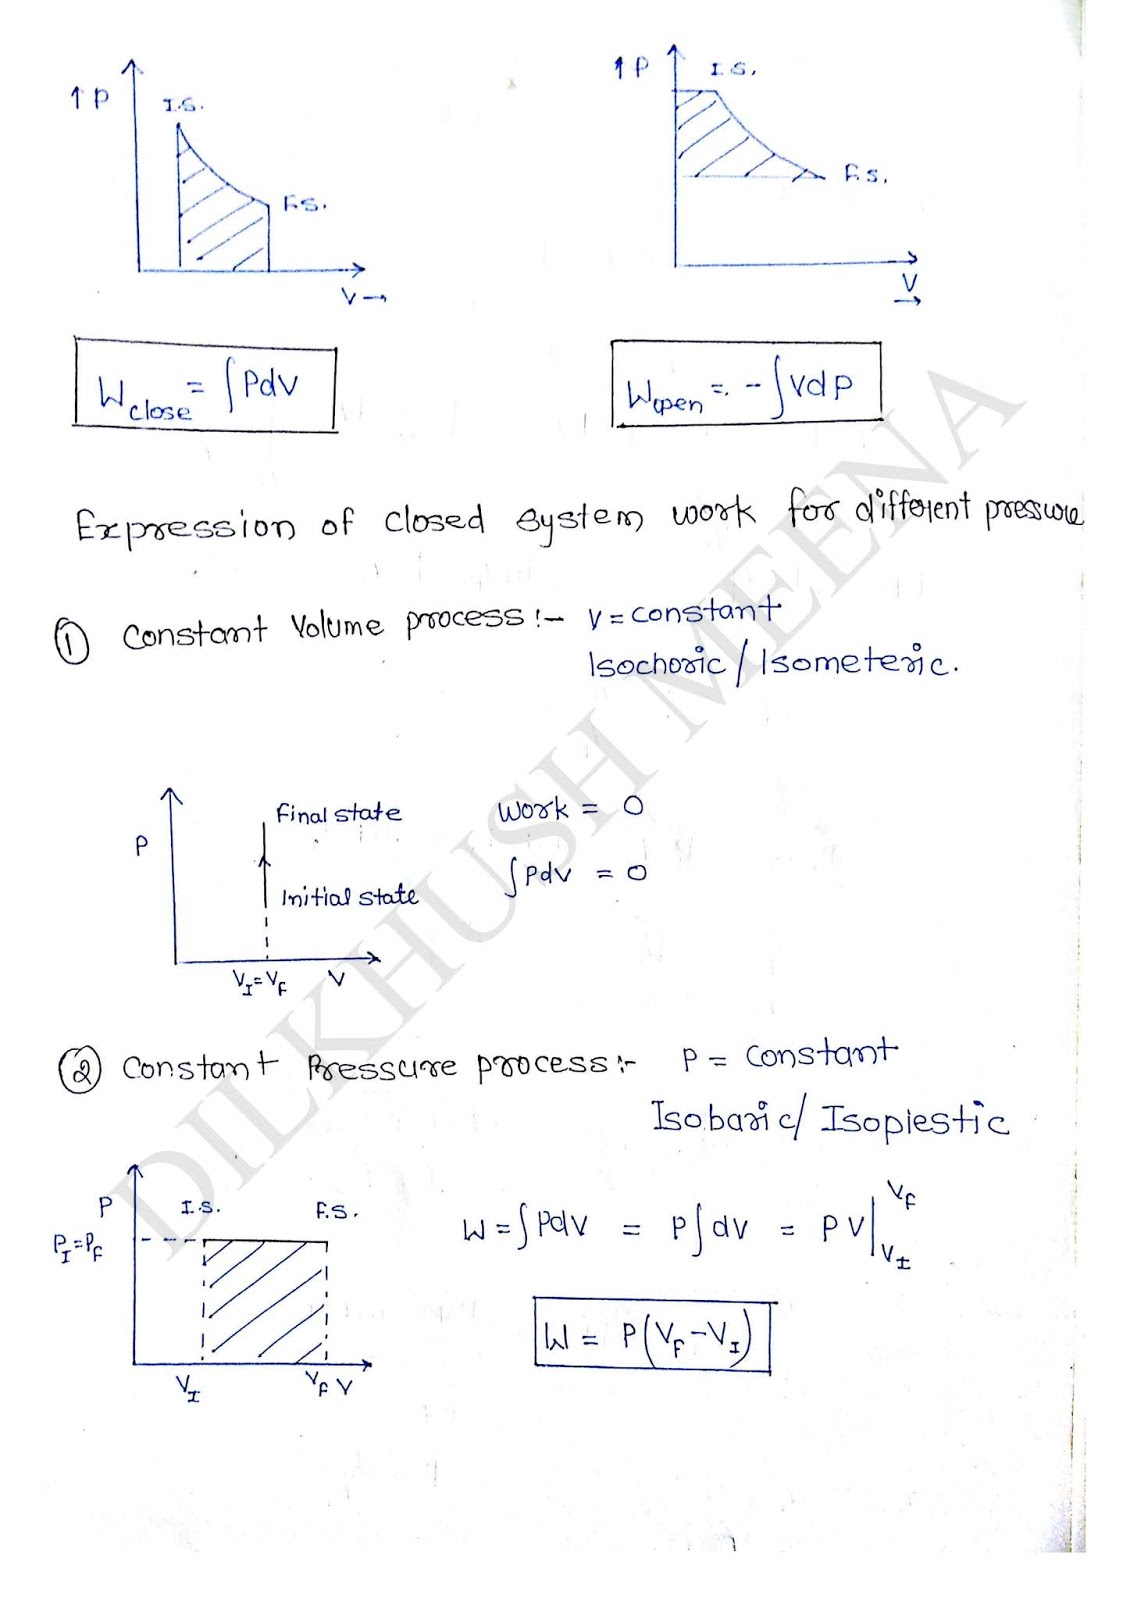 ↑P I.S. F.S. V→
↑P I.S. F.S. V→
W close = ∫PdV
W open = -∫VdP
Expression of closed system work for different pressure
① Constant Volume process:- V = constant
Isochoric / Isometeric.
P Final state Work = 0
Initial state ∫PdV = 0
V_I = V_F V
② Constant Pressure process:- P = constant
Isobaric / Isopiestic
P I.S. F.S.
P_I = P_F
W = ∫PdV = P∫dV = PV|_{V_I}^{V_F}
W = P(V_F - V_I)
V_I V_F V
DILKHUSH MEENA